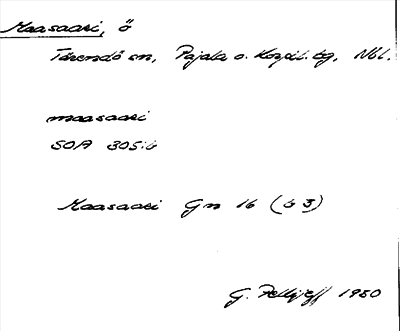 Maasaari, ö
Tärendö sn, Pajala o. Korpil. tg, Nbl.
maasaari
SOA 305:6
Maasaari Gn 16 (b 3)
G. Pellijeff 1950